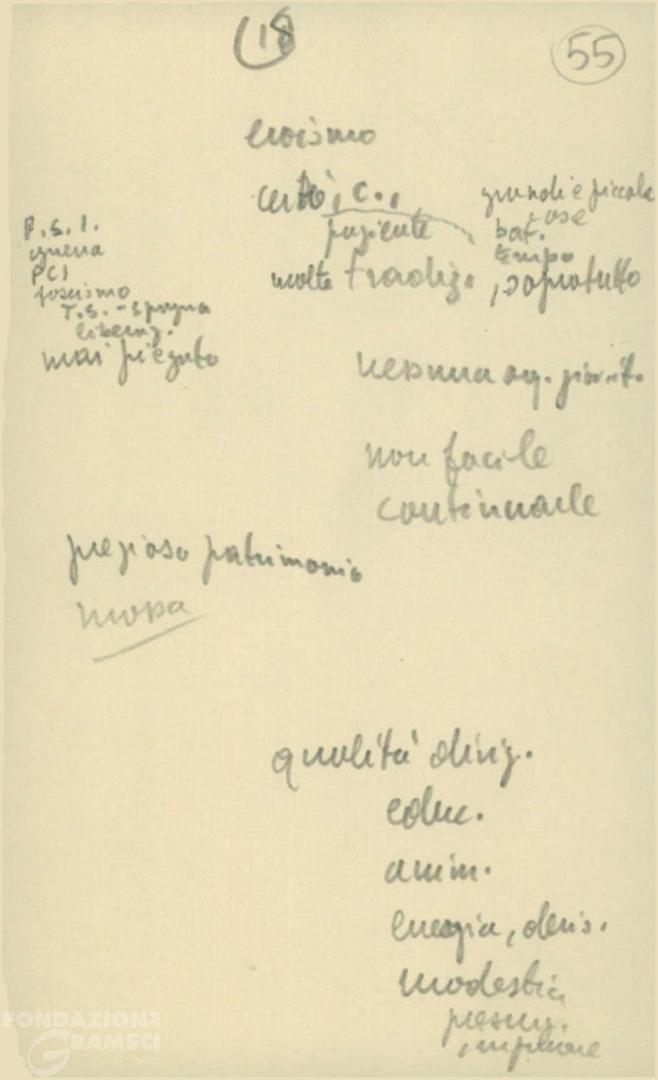 18
55
eroismo
certo, c.,
paziente
grandi e piccole
cose
bat.
tempo
molte tradiz. , soprattutto
P.S.I.
guerra
PCI
fascismo
T.S. - Spagna
liberaz.
mai piegato
nessuna org.
non facile
continuarle
prezioso patrimonio
mossa
qualità dirig.
educ.
anim.
energia, decis.
modestia
FONDAZIONE
GRAMSCI